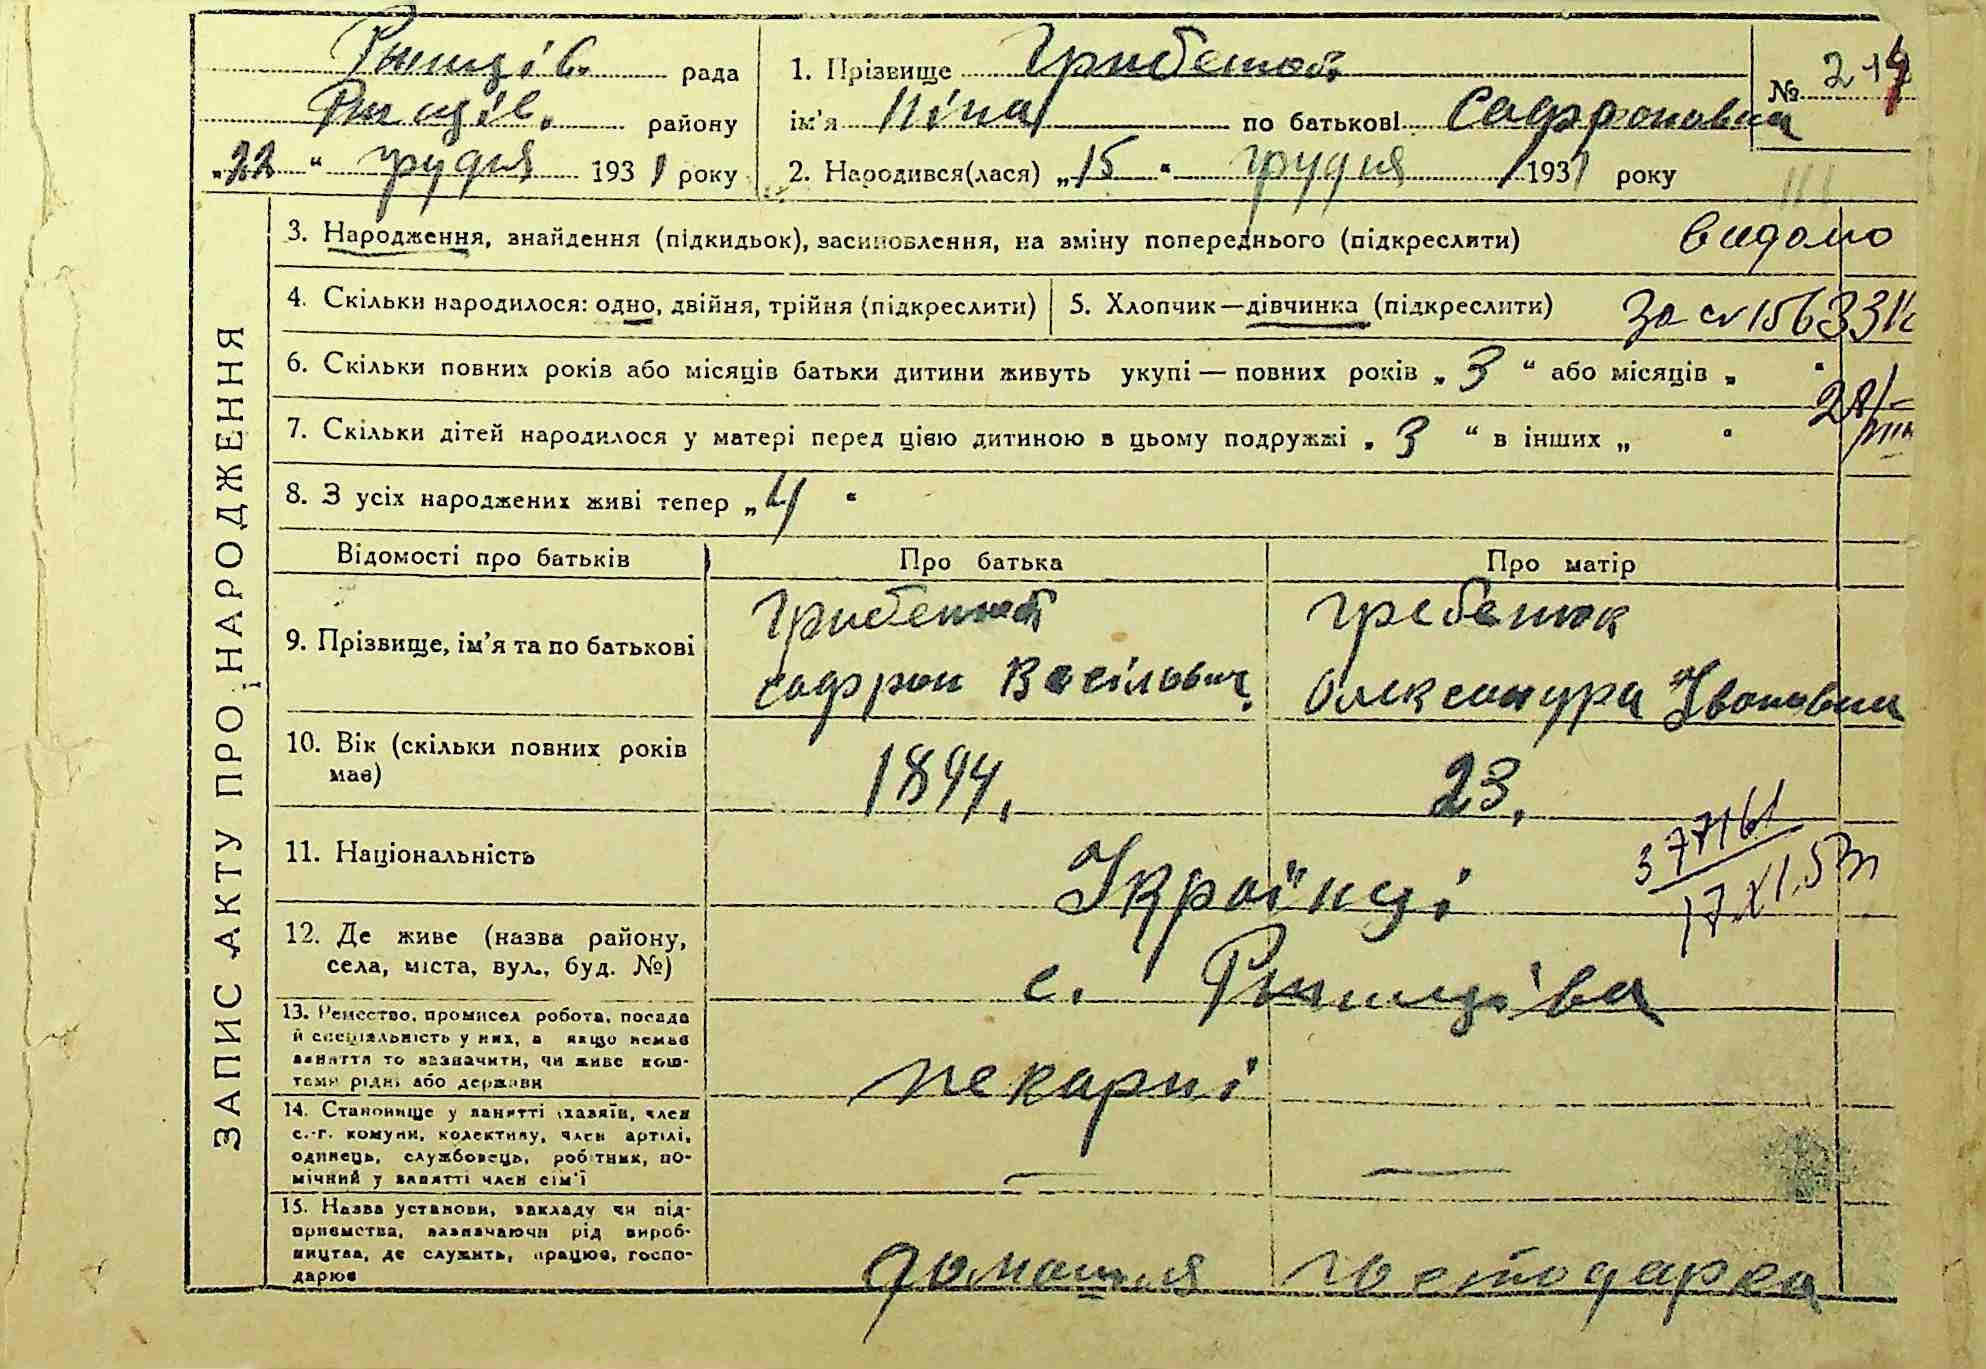 рада
району
„22“ грудня 1931 року
1. Прізвище
ім'я Ніна по батькові Софроновна
2. Народився(лася) „15“ грудня 1931 року
№
ЗАПИС АКТУ ПРО НАРОДЖЕННЯ
3. Народження, знайдення (підкидьок), засиновлення, на зміну попереднього (підкреслити)
видано
4. Скільки народилося: одно, двійня, трійня (підкреслити)
5. Хлопчик—дівчинка (підкреслити)
6. Скільки повних років або місяців батьки дитини живуть укупі — повних років „3“ або місяців „ “
7. Скільки дітей народилося у матері перед цією дитиною в цьому подружжі „3“ в інших „ “
8. З усіх народжених живі тепер „4“
Відомості про батьків
Про батька
Про матір
9. Прізвище, ім'я та по батькові
Софрон Васільович
Гребенюк
Олександра Івановна
10. Вік (скільки повних років
має)
1894.
23.
11. Національність
Українці
12. Де живе (назва району,
села, міста, вул., буд. №)
с.
13. Ремество, промисел робота, посада
й спеціяльність у них, а якщо немає
заняття то зазначити, чи живе кош-
тами рідні або держави
пекарні
14. Становище у занятті хазяїн, член
с.-г. комуни, колективу, член артілі,
одинець, службовець, робітник, по-
мічний у занятті член сім'ї
— —
15. Назва установи, закладу чи під-
приємства, зазначаючи рід вироб-
ництва, де служить, працює, госпо-
дарює
домашня господарка